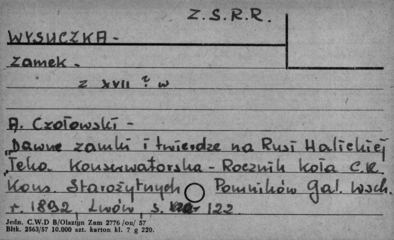 Z.S.R.R.
WYSUCZKA -
zamek -
z XVII ? w
A. Czołowski -
"Dawne zamki i twierdze na Rusi Halickiej
"Teka Konserwatorska - Rocznik koła C.K.
Kons. Starożytnych Pomników Gal. Wsch.
r. 1892 Lwów s. 122
Jedn. C.W.D B/Olsztyn Zam 2776 /on/ 57
Bltk. 2563/57 10.000 szt. karton kl. 7 g 220.